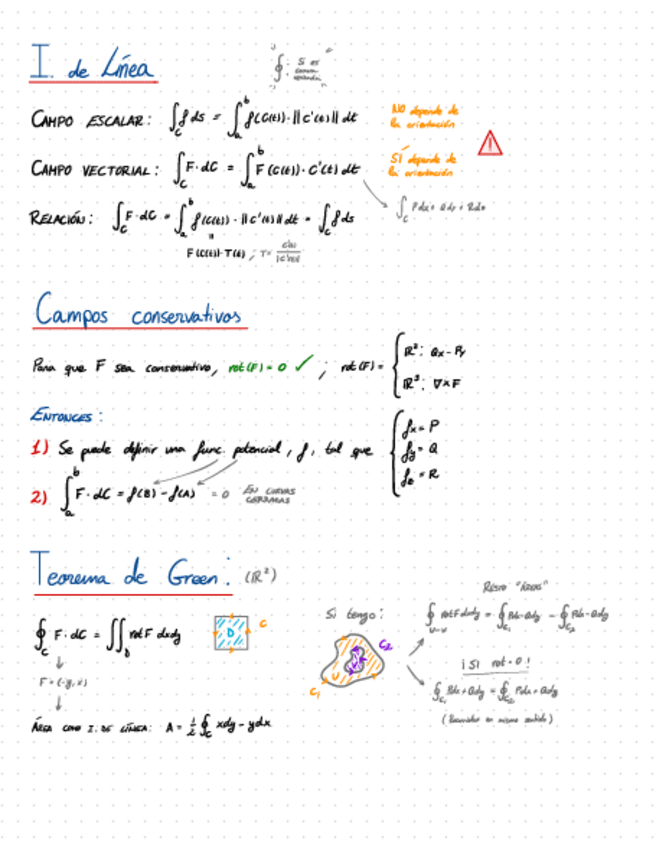 I. de Línea
∮: Si es
CAMPO ESCALAR: ∫_C f ds = ∫_a^b f(c(t)) · ||c'(t)|| dt
NO depende de
la orientación
CAMPO VECTORIAL: ∫_C F · dC = ∫_a^b F(c(t)) · c'(t) dt
SÍ depende de
la orientación
∫_C Pdx + Qdy + Rdz
RELACIÓN: ∫_C F · dC = ∫_a^b f(c(t)) · ||c'(t)|| dt = ∫_C f ds
||
F(c(t)) · T(t) ; T = c'(t) / ||c'(t)||
Campos conservativos
Para que F sea conservativo, rot(F) = 0 ✓ ; rot(F) = {
ℝ²: Qx - Py
ℝ³: ∇×F
ENTONCES:
1) Se puede definir una func. potencial, f, tal que {
fx = P
fy = Q
fz = R
2) ∫_a^b F · dC = f(B) - f(A) = 0 EN CURVAS
CERRADAS
Teorema de Green: (ℝ²)
∮_C F · dC = ∬_D rot F dxdy
D C
↓
F = (-y, x)
↓
ÁREA COMO I. DE LÍNEA: A = ½ ∮_C xdy - ydx
Si tengo:
C₂
C₁ U
Resto "ÁREAS"
∮ rot F dxdy = ∮_C₁ Pdx - Qdy - ∮_C₂ Pdx - Qdy
¡SI rot = 0!
∮_C₁ Pdx + Qdy = ∮_C₂ Pdx + Qdy
(Recorridos en mismo sentido)